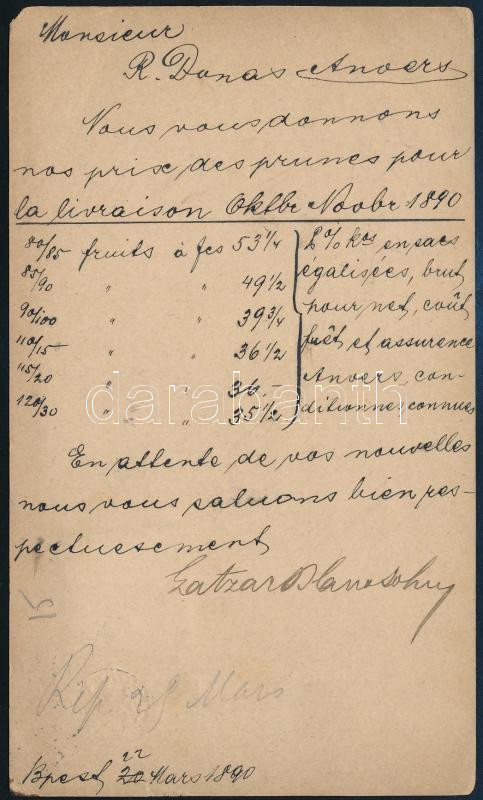 Monsieur
R. Donas Anvers
Nous vous donnons
nos prix des prunes pour
la livraison Oktbr Novbr 1890
80/85 fruits à fcs 53 1/4
85/90 " " 49 1/2
90/100 " " 39 3/4
110/15 " " 36 1/2
115/20 " " 36 -
120/30 " " 35 1/2
% kos en sacs
égalisées, brut
pour net, coût
frêt et assurence
Anvers, con-
ditionnes connues
En attente de vos nouvelles
nous vous saluons bien res-
pectuesement
Rép 28 Mars
15
Bpest, 20 22 Mars 1890
darabanth